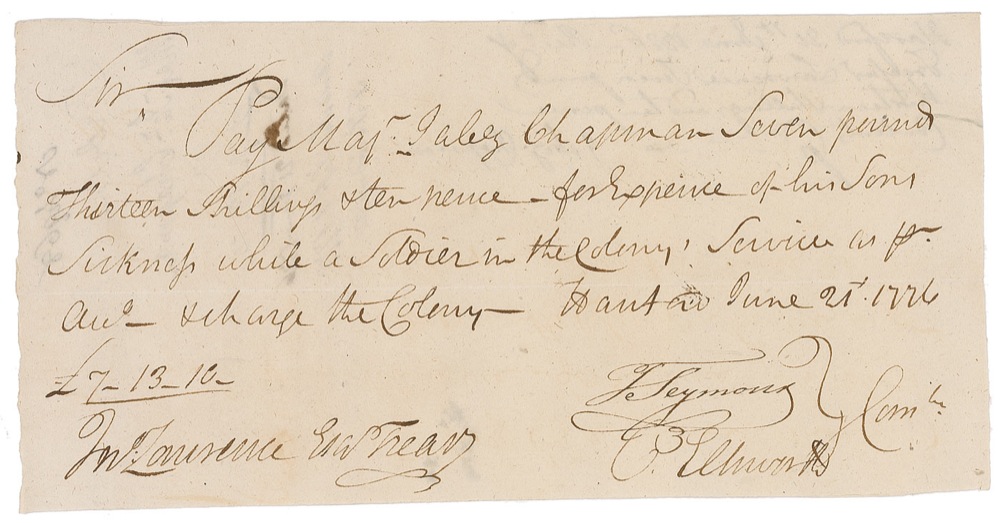 Sir,
Pay Majr. Jabez Chapman Seven pounds
Thirteen Shillings & ten pence – for Expence of his Sons
Sickness while a Soldier in the Colony's Service as pr.
Acct – & charge the Colony – Hartford June 21st. 1776
£7–13–10–
T Seymour
Comtee
Jno. Lawrence Esqr Treasr
O. Ellsworth